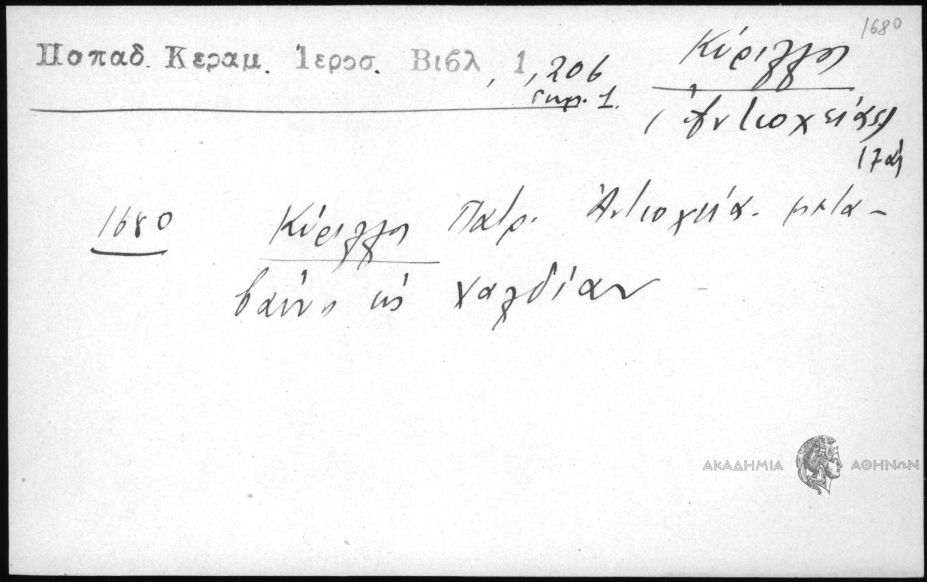 1680
Παπαδ. Κεραμ. Ἱεροσ. Βιβλ 1, , 206
σημ. 1.
Κύριλλος
Ἀντιοχείας
17ος
1680
Κύριλλος Πατρ. Ἀντιοχεία. μετα-
βαίνει εἰς Χαλδίαν
ΑΚΑΔΗΜΙΑ ΑΘΗΝΩΝ